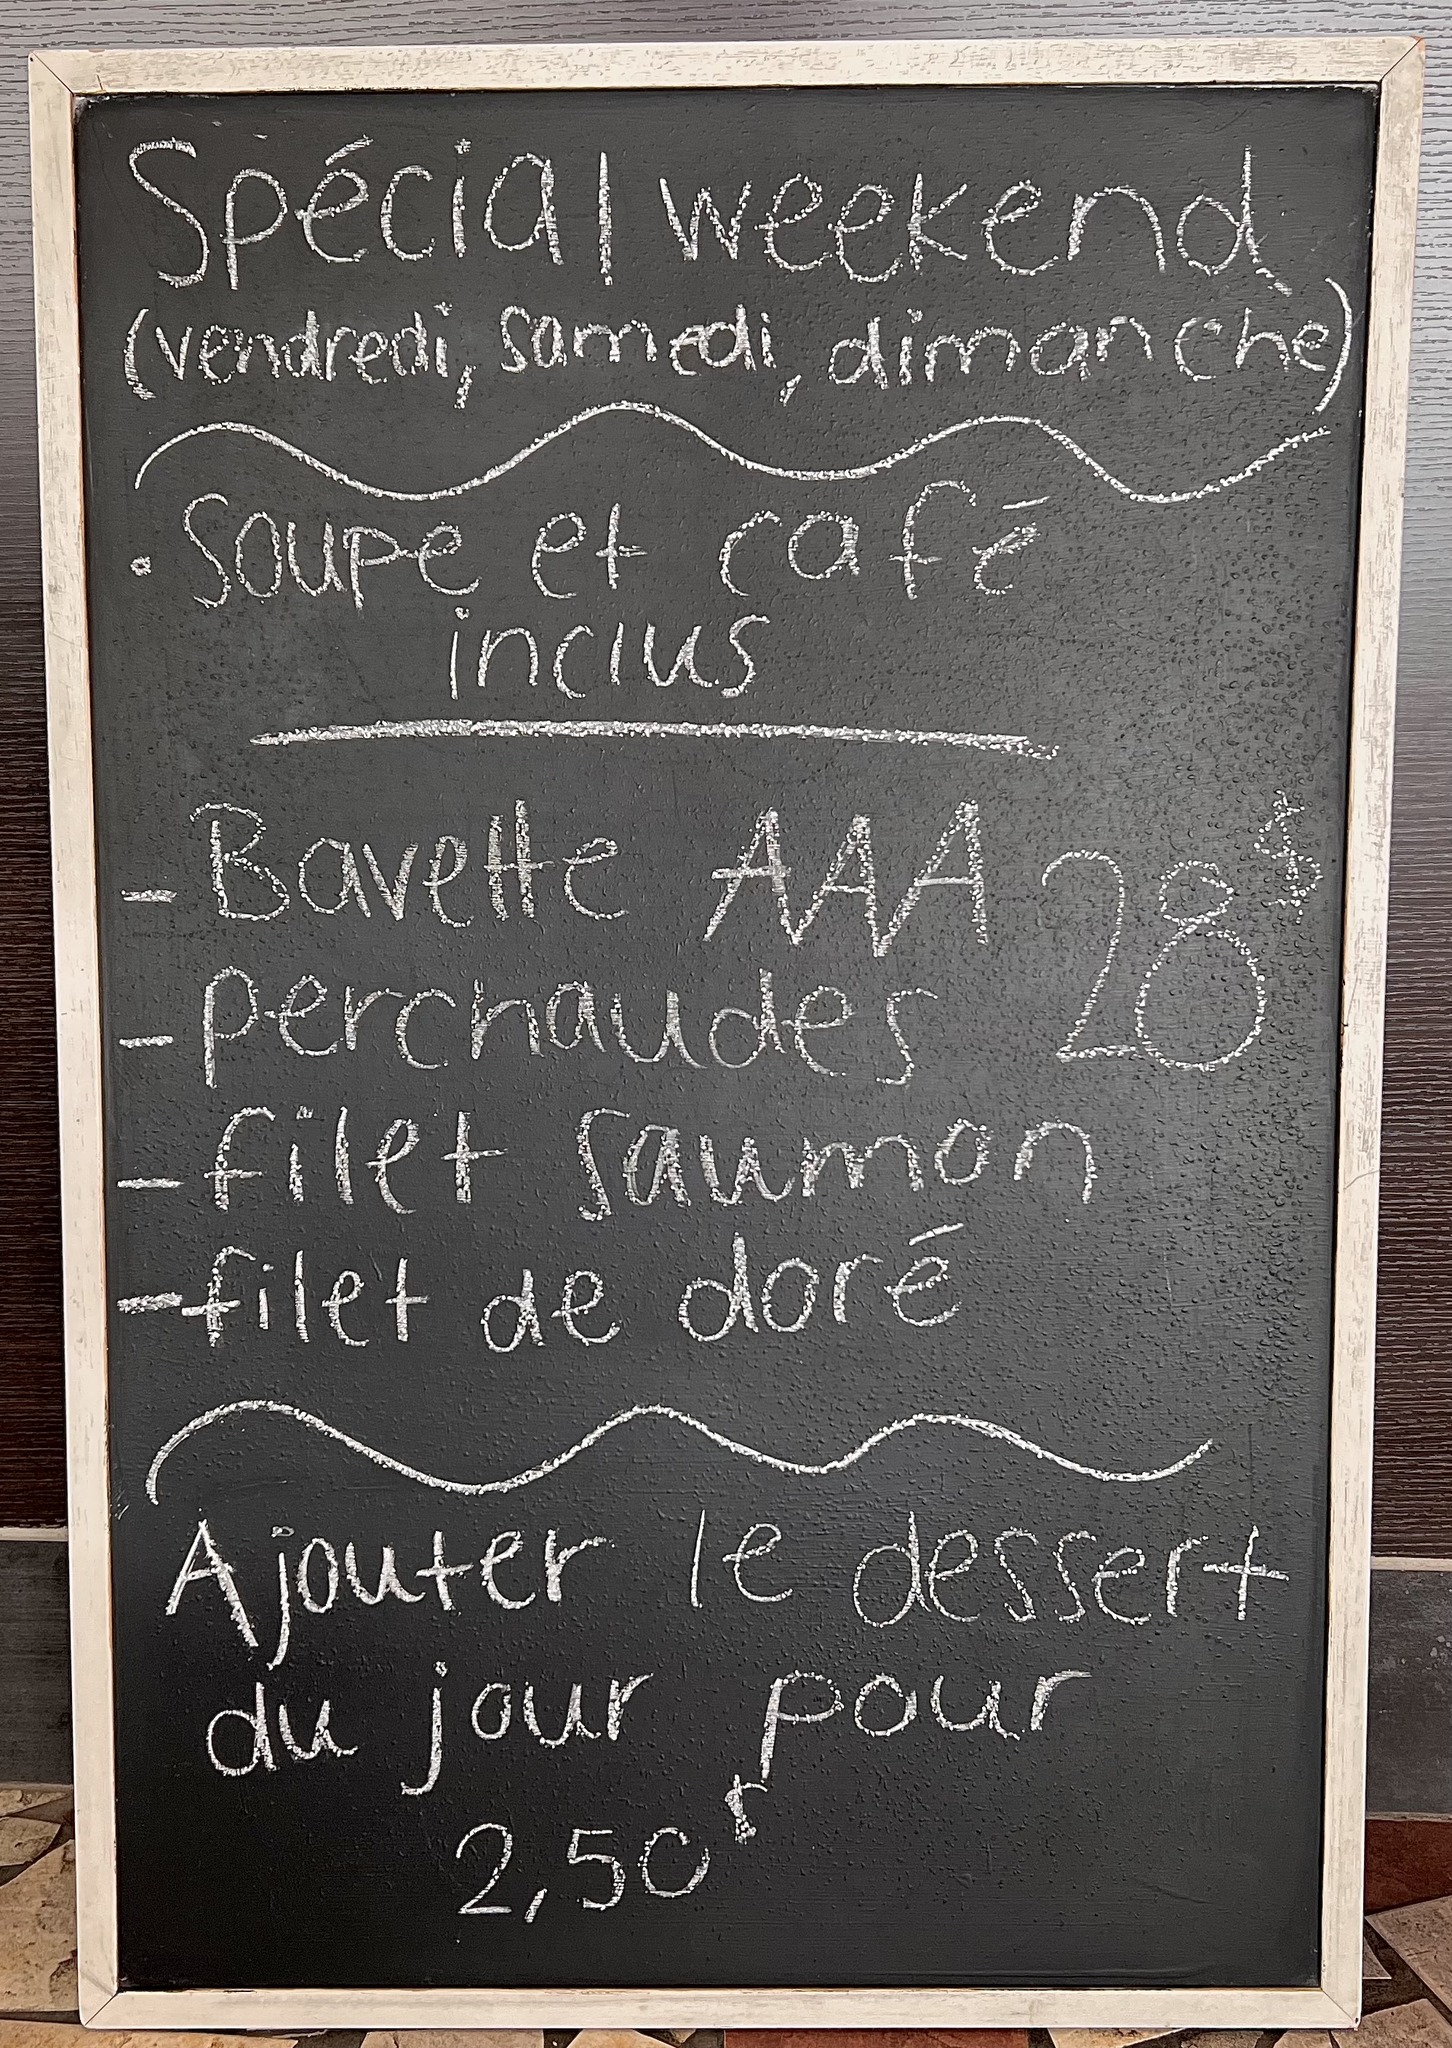 Spécial weekend
(vendredi, samedi, dimanche)
• Soupe et café
inclus
- Bavette AAA 28$
- perchaudes
- filet saumon
- filet de doré
Ajouter le dessert
du jour pour
2,50$